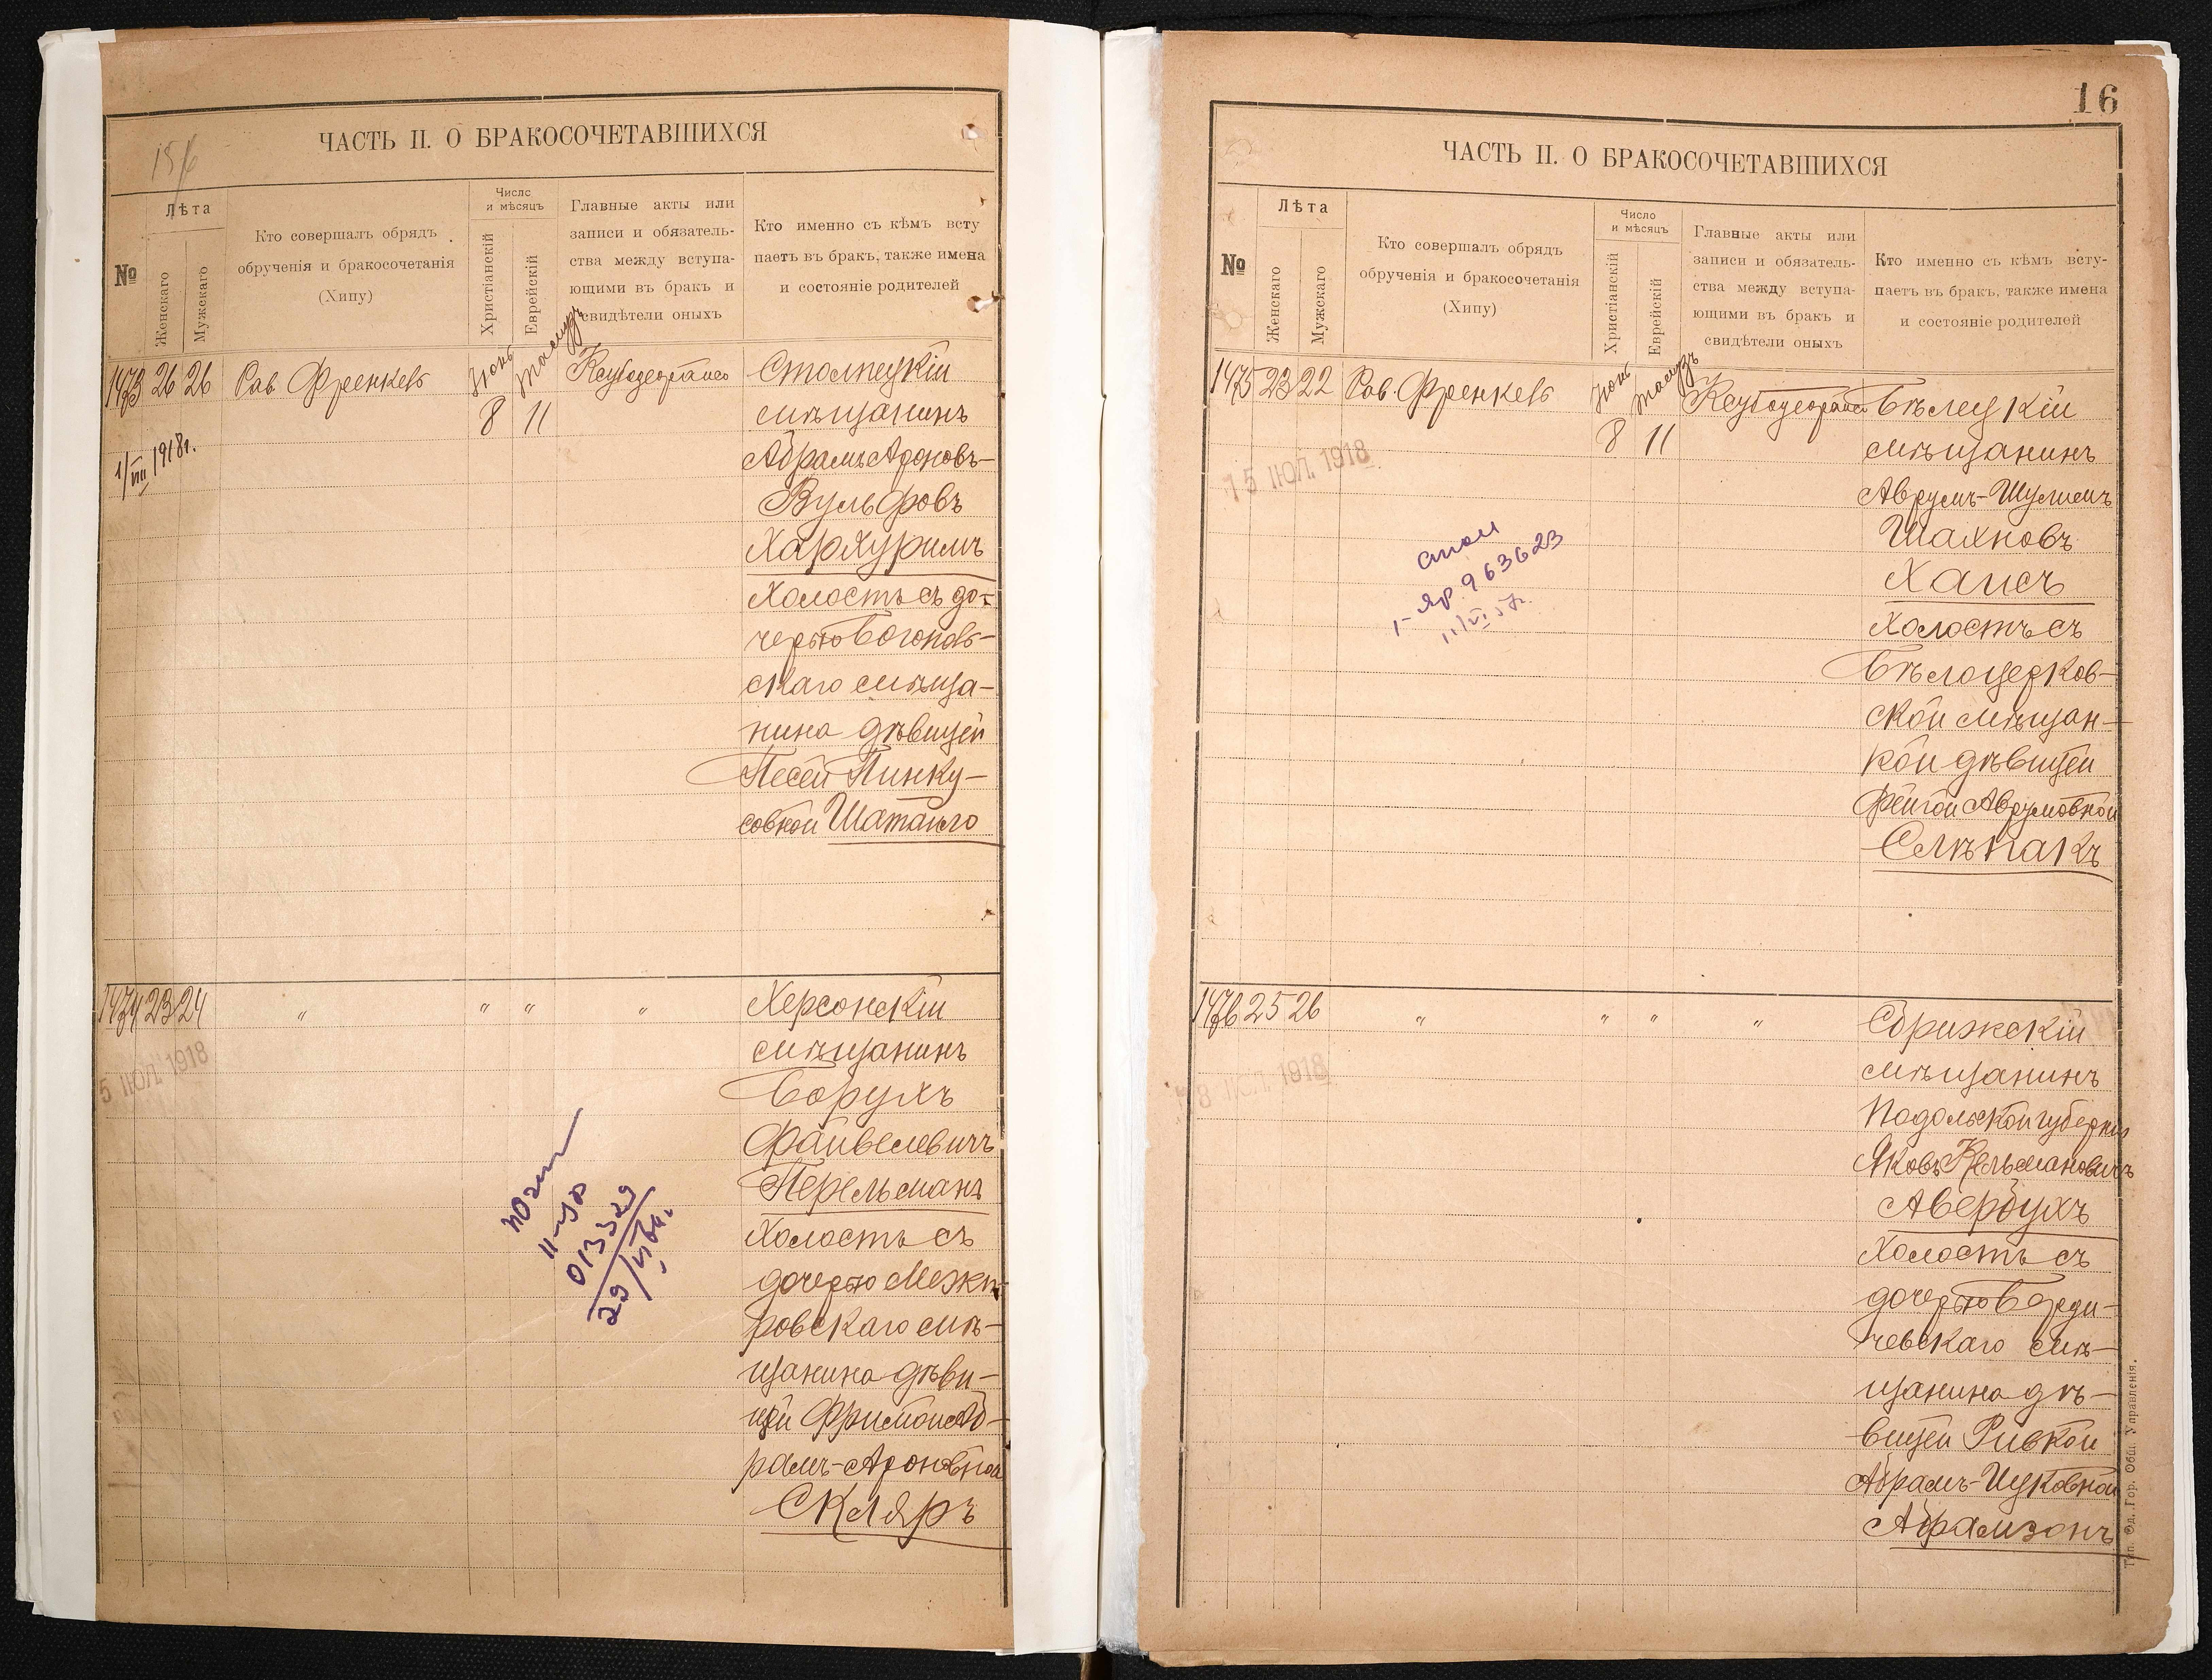 156
ЧАСТЬ II. О БРАКОСОЧЕТАВШИХСЯ
№
Лѣта
Женскаго
Мужскаго
Кто совершалъ обрядъ
обрученія и бракосочетанія
(Хипу)
Число
и мѣсяцъ
Христіанскій
Еврейскій
Главные акты или
записи и обязатель-
ства между вступа-
ющими въ бракъ и
свидѣтели оныхъ
Кто именно съ кѣмъ всту
паетъ въ бракъ, также имена
и состояніе родителей
1473 26 26 Рав. Френкель
Іюнь
8
Тамузъ
11
Столпецкій
мѣщанинъ
Абрамъ Ароновъ-
Вульфовъ
Хархуримъ
Холостъ съ до-
черью Богополь-
скаго мѣща-
нина дѣвицей
Песей Пинку-
совной Шатанго
1/VIII 1918 г.
1474 23 24 " " " "
5 ІЮЛ. 1918
Херсонскій
мѣщанинъ
Борухъ
Файвелевичъ
Перельманъ
Холостъ съ
дочерью Межи-
ровскаго мѣ-
щанина дѣви-
цей Фримой Аб-
рамъ-Ароновной
Скляръ
013329
16
ЧАСТЬ II. О БРАКОСОЧЕТАВШИХСЯ
№
Лѣта
Женскаго
Мужскаго
Кто совершалъ обрядъ
обрученія и бракосочетанія
(Хипу)
Число
и мѣсяцъ
Христіанскій
Еврейскій
Главные акты или
записи и обязатель-
ства между вступа-
ющими въ бракъ и
свидѣтели оныхъ
Кто именно съ кѣмъ всту-
паетъ въ бракъ, также имена
и состояніе родителей
1475 23 22 Рав. Френкель
Іюнь
8
Тамузъ
11
15 ІЮЛ. 1918
Бѣлецкій
мѣщанинъ
Аврумъ-Шулимъ
Шахновъ
Хаисъ
Холостъ съ
Бѣлоцерков-
ской мѣщан-
кой дѣвицей
Фейгой Аврумовной
Слѣпакъ
I-ЯР. 963623
1476 25 26 " " " "
ІЮЛ. 1918
мѣщанинъ
Подольской губерніи
Яковъ Кельмановичъ
Авербухъ
Холостъ съ
дочерью Берди-
чевскаго мѣ-
щанина дѣ-
вицей Ривкой
Абрамъ-Ицковной
Абрамзонъ
Тип. Од. Гор. Общ. Управленія.